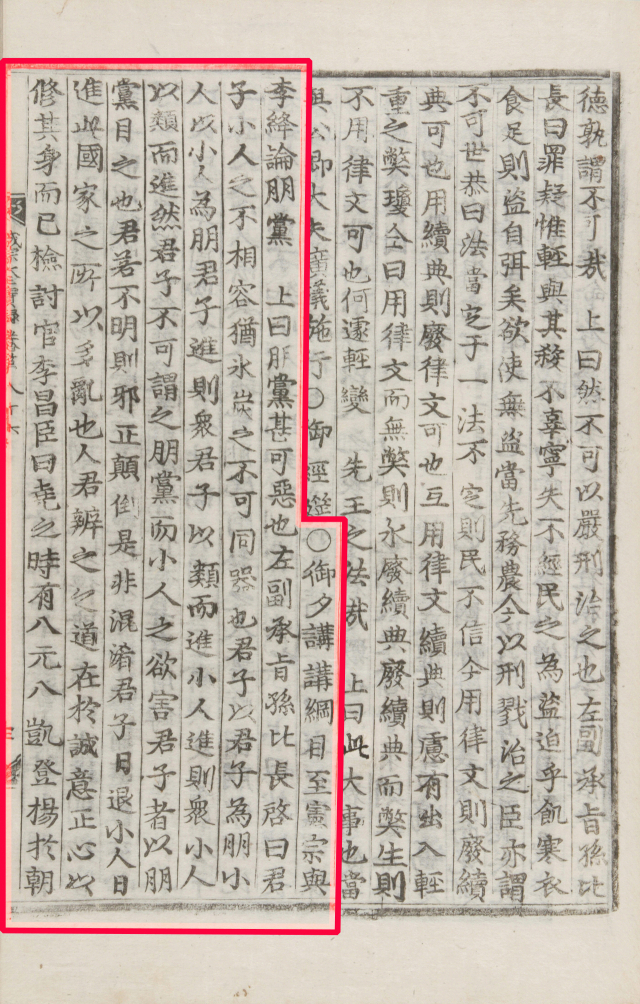 德孰謂不可哉 上曰然不可以嚴刑治之也左副承旨孫比
長曰罪疑惟輕與其殺不辜寧失不經民之為盜迫乎飢寒衣
食足則盜自弭矣欲使無盜當先務農今以刑戮治之臣亦謂
不可世恭曰法當定于一法不定則民不信今用律文則廢續
典可也用續典則廢律文可也互用律文續典則慮有出入輕
重之弊瓊仝曰用律文而無弊則永廢續典廢續典而弊生則
不用律文可也何遽輕變 先王之法哉 上曰此大事也當
與公卿大夫廣議施行○御經筵○御夕講講綱目至憲宗與
李絳論朋黨 上曰朋黨甚可惡也左副承旨孫比長啓曰君
子小人之不相容猶氷炭之不可同器也君子以君子為朋小
人以小人為朋君子進則衆君子以類而進小人進則衆小人
以類而進然君子不可謂之朋黨而小人之欲害君子者以朋
黨目之也君若不明則邪正顛倒是非混淆君子日退小人日
進此國家之所以多亂也人君辨之之道在於誠意正心以
修其身而已檢討官李昌臣曰堯之時有八元八凱登揚於朝